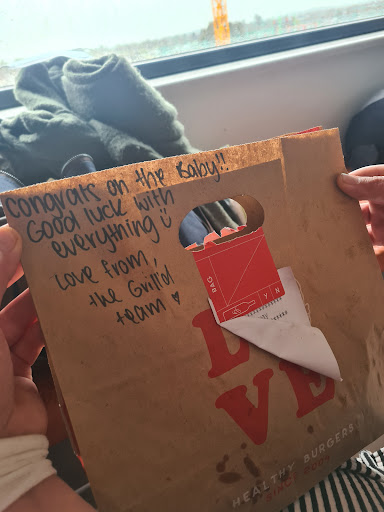 Congrats on the Baby!!
Good luck with
everything
Love from,
the Grill'd
team
BAG
Y N
LOVE
HEALTHY BURGERS
SINCE